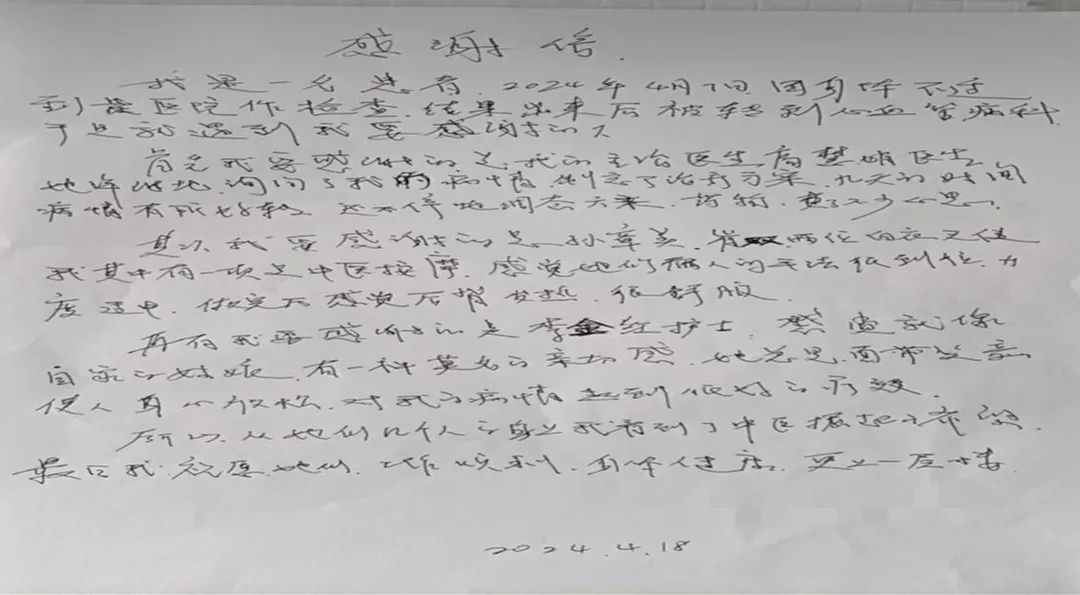 感谢信
我是一名患者，2024年4月7日因身体不适
到医院作检查，结果出来后被转到心血管病科
于是就遇到我要感谢的人
首先我要感谢的是我的主治医生高楚娟医生，
她详细地询问了我的病情，制定了治疗方案，九天的时间
病情有所好转，还不停地调态方案，药物，费了不少心思，
其次我要感谢的是孙章美、崔双两位白衣天使
我其中有一项是中医按摩，感觉她们俩人的手法很到位，力
度适中，做完后感觉后背发热，很舒服。
再有我要感谢的是李金红护士，就像
自家的姑娘，有一种莫名的亲切感，她总是面带笑意
使人身心放松，对我的病情起到很好的疗效，
所以从她们几个人的身上我看到了中医振起的希望，
最后我祝愿她们，工作顺利，身体健康，更上一层楼。
2024.4.18